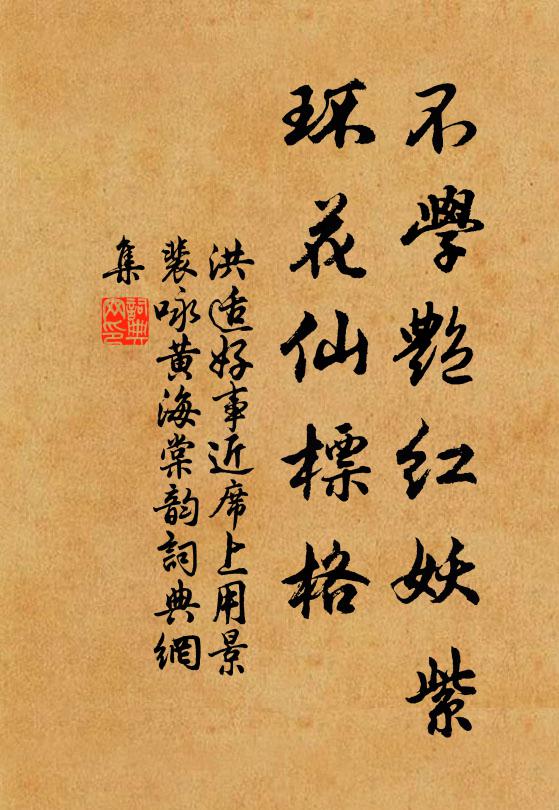 不學艷紅妖紫
琢花仙標格
洪适好事近席上用景
裴咏黄海棠韵詞典網
集
詞典網印